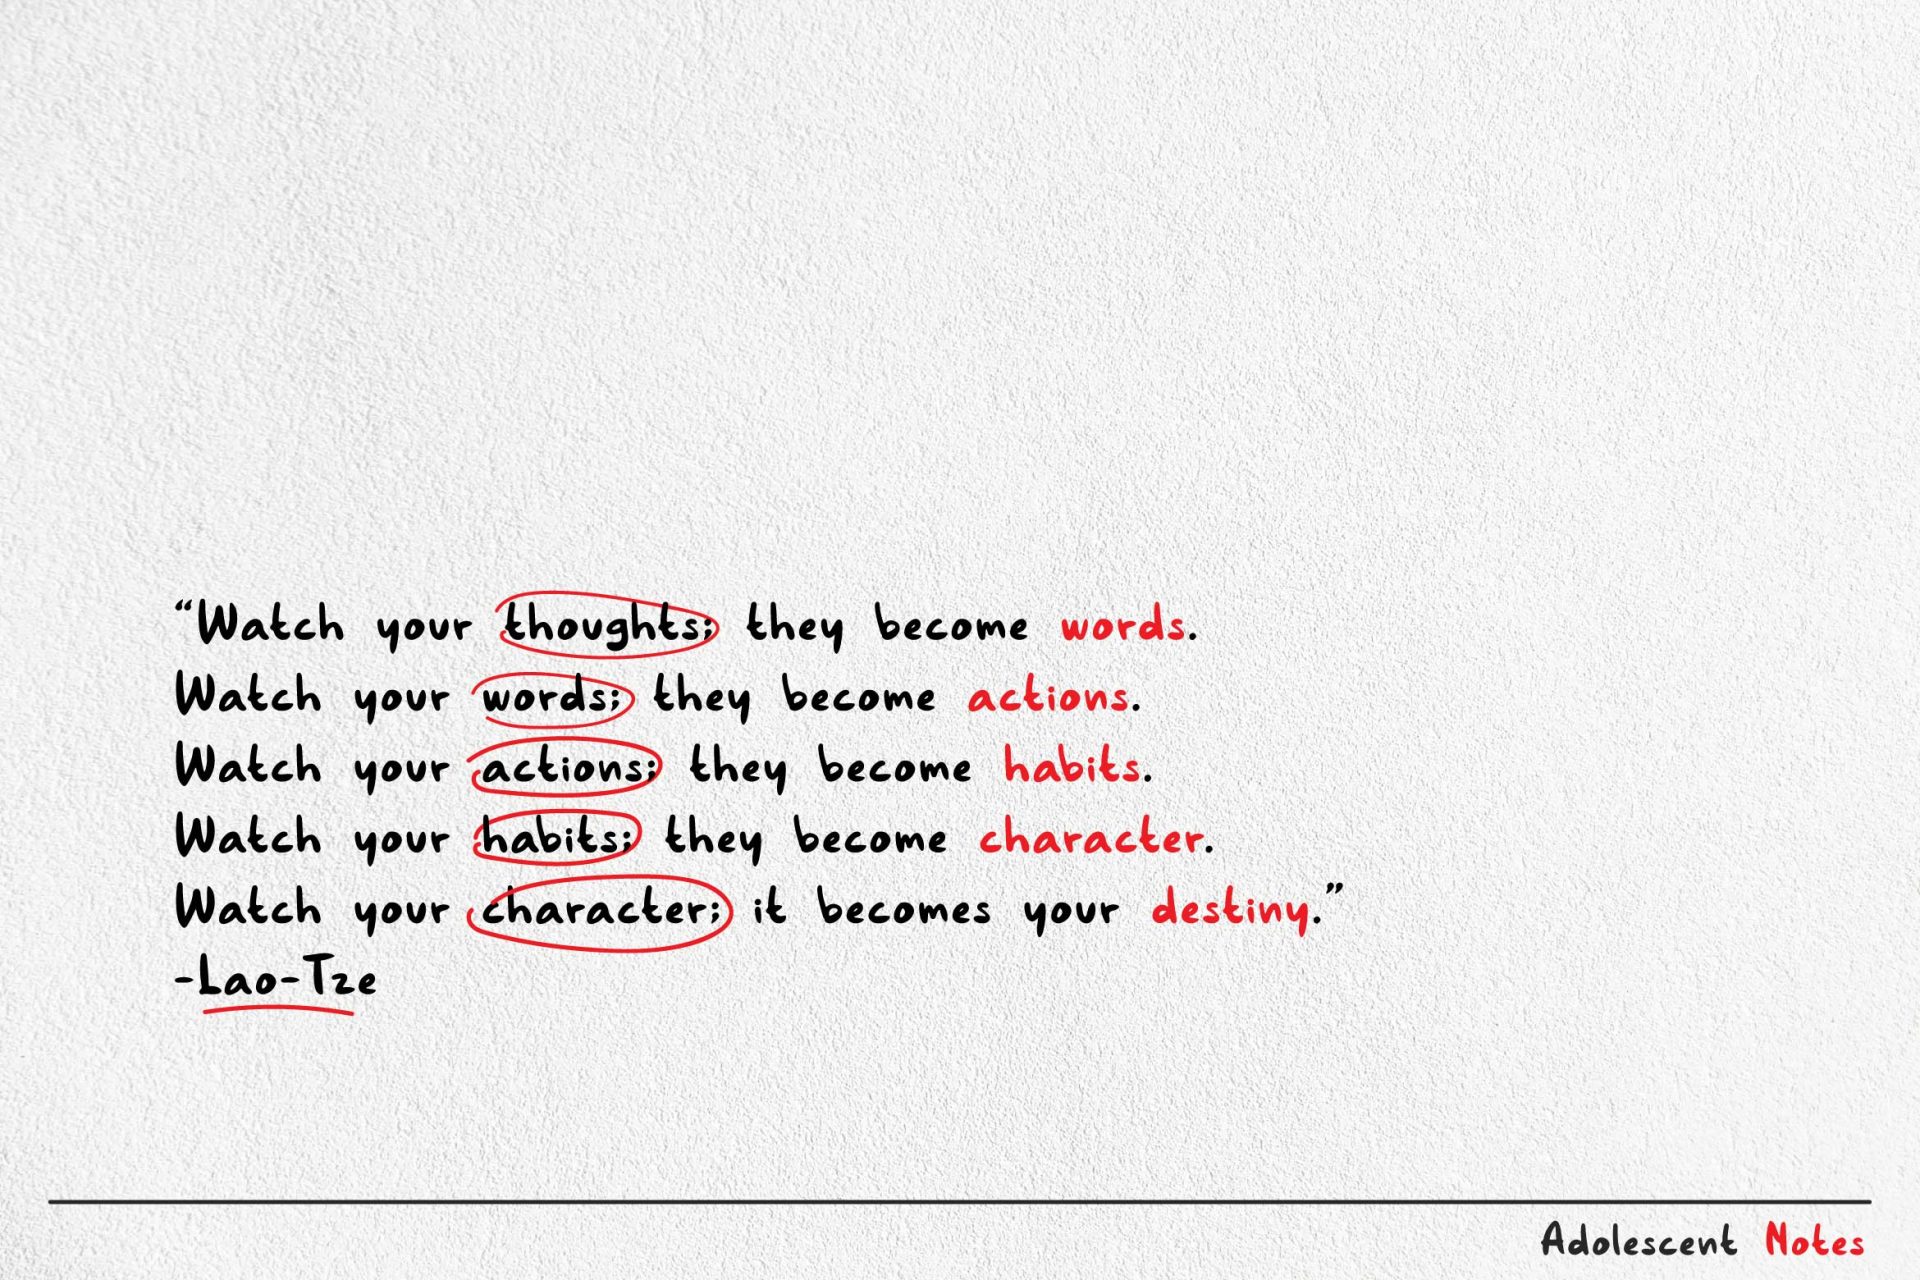 “Watch your thoughts; they become words.
Watch your words; they become actions.
Watch your actions; they become habits.
Watch your habits; they become character.
Watch your character; it becomes your destiny.”
-Lao-Tze
Adolescent Notes